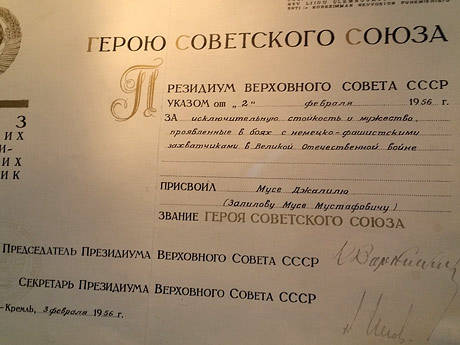 ГЕРОЮ СОВЕТСКОГО СОЮЗА
ПРЕЗИДИУМ ВЕРХОВНОГО СОВЕТА СССР
УКАЗОМ от „2" февраля 1956 г.
ЗА исключительную стойкость и мужество,
проявленные в боях с немецко-фашистскими
захватчиками в Великой Отечественной войне
ПРИСВОИЛ Мусе Джалилю
(Залилову Мусе Мустафовичу)
ЗВАНИЕ ГЕРОЯ СОВЕТСКОГО СОЮЗА
З
ИХ
И-
ИХ
ИК
ПРЕДСЕДАТЕЛЬ ПРЕЗИДИУМА ВЕРХОВНОГО СОВЕТА СССР
СЕКРЕТАРЬ ПРЕЗИДИУМА ВЕРХОВНОГО СОВЕТА СССР
-Кремль, 3 февраля 1956 г.